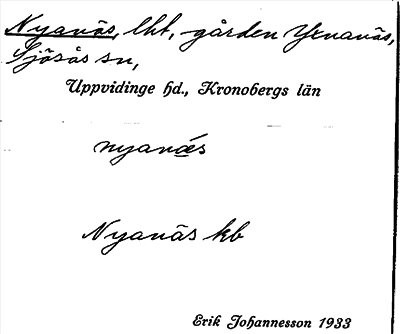 Nyanäs, lht, gården Yxnanäs,
Sjösås sn,
Uppvidinge hd., Kronobergs län
nyanä́s
Nyanäs kb
Erik Johannesson 1933